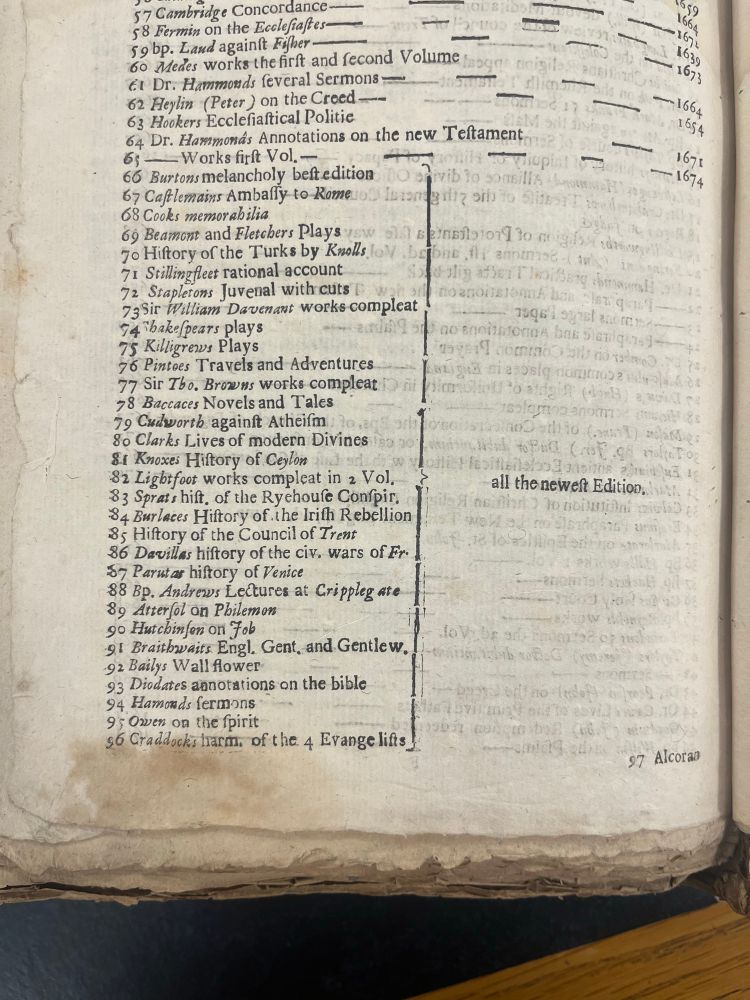 57 Cambridge Concordance— 1659
58 Fermin on the Eccleſiaſtes— 1664
59 bp. Laud againſt Fiſher— 1639
60 Medes works the firſt and ſecond Volume 1673
61 Dr. Hammonds ſeveral Sermons—
62 Heylin (Peter) on the Creed— 1664
63 Hookers Eccleſiaſtical Politie 1654
64 Dr. Hammonds Annotations on the new Teſtament
65 —Works firſt Vol.— 1671
66 Burtons melancholy beſt edition 1674
67 Caſtlemains Ambaſſy to Rome
68 Cooks memorabilia
69 Beamont and Fletchers Plays
70 Hiſtory of the Turks by Knolls
71 Stillingfleet rational account
72 Stapletons Juvenal with cuts
73 Sir William Davenant works compleat
74 Shakeſpears plays
75 Killigrews Plays
76 Pintoes Travels and Adventures
77 Sir Tho. Browns works compleat
78 Baccaces Novels and Tales
79 Cudworth againſt Atheiſm
80 Clarks Lives of modern Divines
81 Knoxes Hiſtory of Ceylon
82 Lightfoot works compleat in 2 Vol. all the neweſt Edition.
83 Sprats hiſt. of the Ryehouſe Conſpir.
84 Burlaces Hiſtory of the Iriſh Rebellion
85 Hiſtory of the Council of Trent
86 Davillas hiſtory of the civ. wars of Fr.
87 Parutas hiſtory of Venice
88 Bp. Andrews Lectures at Cripplegate
89 Atterſol on Philemon
90 Hutchinſon on Job
91 Braithwaits Engl. Gent. and Gentlew.
92 Bailys Wall flower
93 Diodates annotations on the bible
94 Hamonds ſermons
95 Owen on the ſpirit
96 Craddocks harm. of the 4 Evangelifts
97 Alcoran